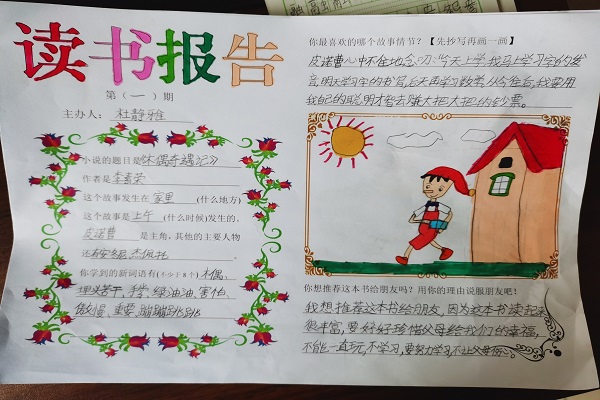 读书报告
第（一）期
主办人：杜静雅
小说的题目是《木偶奇遇记》
作者是李青荣
这个故事发生在家里（什么地方）
这个故事是上午（什么时候）发生的。
皮诺曹是主角，其他的主要人物
还有安东尼 杰佩托
你学到的新词语有(不少于8个)木偶、
埋头苦干、绿油油、害怕、
傲慢、蹦蹦跳跳
你最喜欢的哪个故事情节？【先抄写再画一画】
皮诺曹心中不住地念叨：今天上学，我马上学习字的发
音，明天学习字的书写，后天再学习数学，从今往后，我要用
我自己的聪明才智去赚大把大把的钞票。
你想推荐这本书给朋友吗？用你的理由说服朋友吧！
我想推荐这本书给朋友，因为这本书读起来
很丰富，要好好珍惜父母给我们的幸福，
不能一直玩，不学习，要努力学习，不让父母伤心